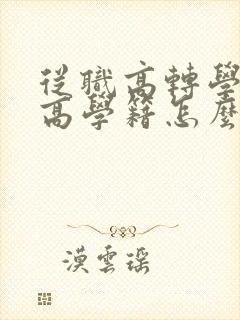 從職高轉學
高學籍怎麼
漠雲瑤